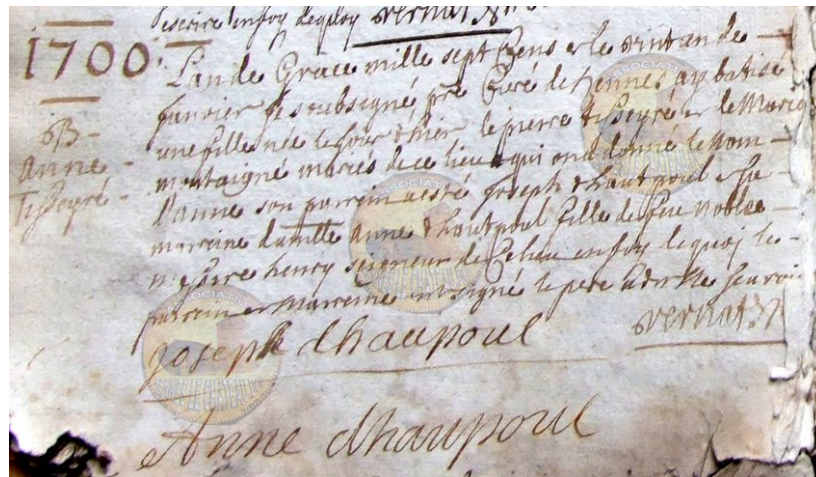 escrire en foy dequoy vernat
1700
B
Anne
Tisseyré
L'an de Grace mille sept Cens et le vint un de
Janvier Je soubsigné pre Curé de Rennes ay batisé
une fille née le Jour d'hier de pierre tisseyré et de Marie
montaigné mariés de ce lieu a qui on a donné le nom
d'anne son parrein a esté Joseph d'hautpoul & sa
marreine damlle Anne d'hautpoul fille de feu noble
messire henry seigneur de en foy dequoy le
parrein et marreine ont signé le pere
vernat
Joseph dhaupoul
Anne dhaupoul